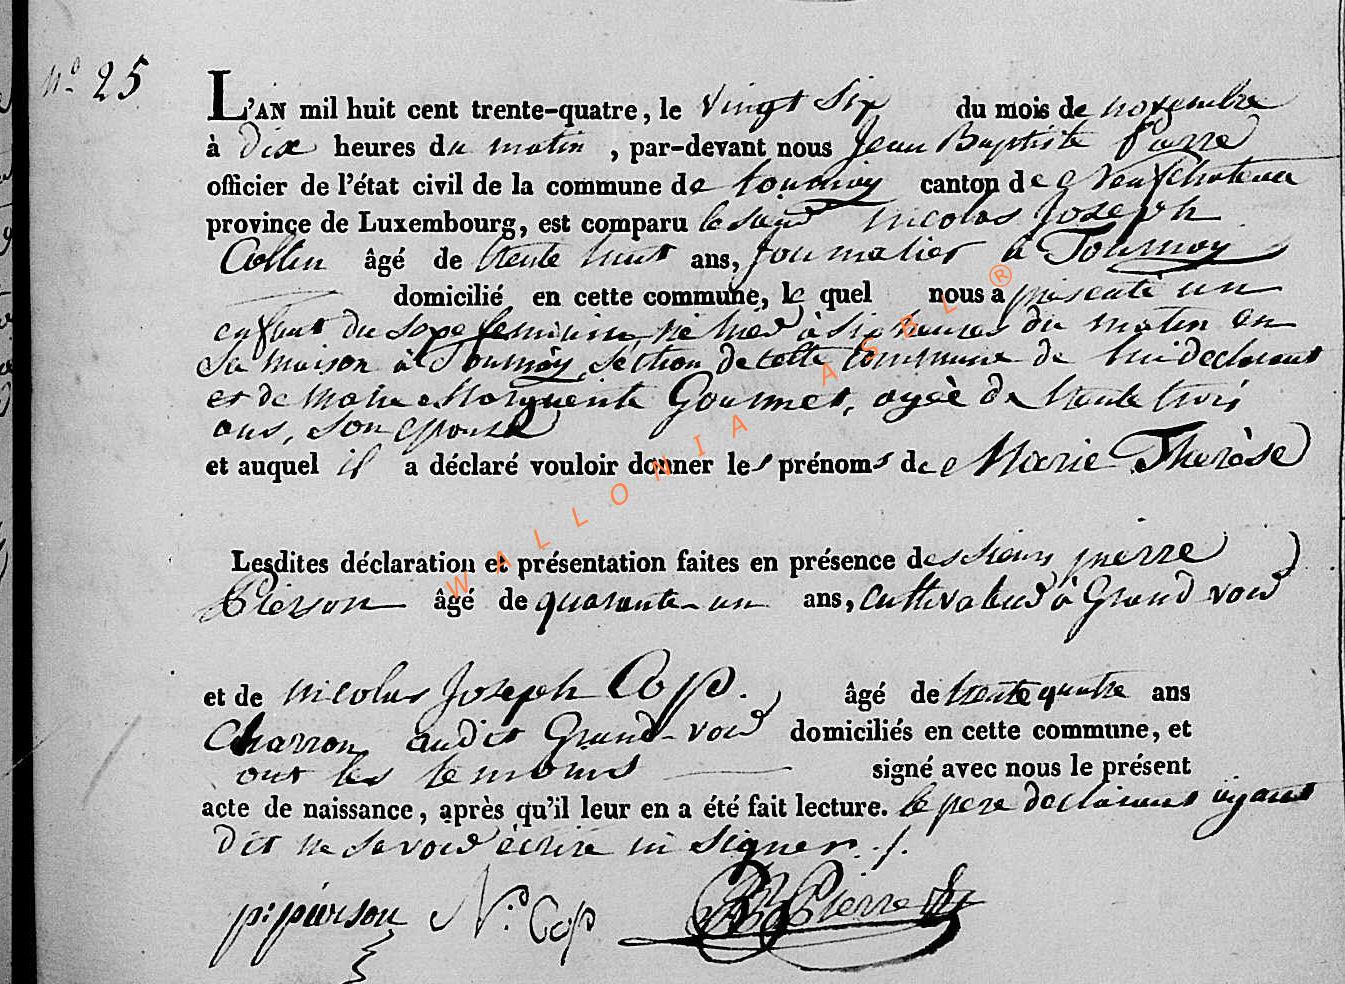 N.º 25
L'AN mil huit cent trente-quatre, le vingt Six du mois de novembre
à dix heures du matin, par-devant nous Jean Baptiste Pierre
officier de l'état civil de la commune de tournay canton de neufchateau
province de Luxembourg, est comparu le sieur nicolas Joseph
Collin âgé de trente huit ans, journalier à Tournay
domicilié en cette commune, le quel nous a présenté un
enfant du sexe feminin, né hier à six heures du matin en
sa maison à Tournay, section de cette commune de lui declarant
et de Marie Marguerite Gourmet, agée de trente trois
ans, son epouse
et auquel il a déclaré vouloir donner les prénoms de Marie Thérèse
Lesdites déclaration et présentation faites en présence des sieurs pierre
Pierson âgé de quarante-un ans, cultivateur à Grand voir
et de nicolas Joseph Cop. âgé de trente quatre ans
Charron audit Grand-voir domiciliés en cette commune, et
ont les temoins signé avec nous le présent
acte de naissance, après qu'il leur en a été fait lecture. le pere declarant ayant
dit ne savoir écrire ni signer ./.
p: pierson N.s Cop JB Pierre
WALLONIA ASBL ®